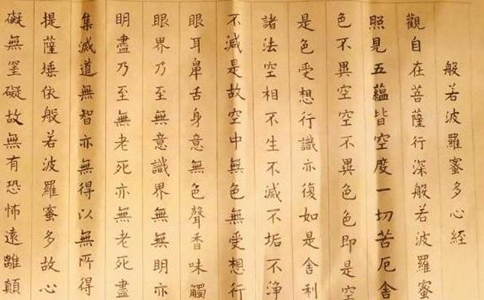 般若波羅蜜多心經
觀自在菩薩行深般若波羅蜜
照見五蘊皆空度一切苦厄舍
色不異空空不異色色即是空
是色受想行識亦復如是舍利
諸法空相不生不滅不垢不淨
不減是故空中無色無受想行
眼耳鼻舌身意無色聲香味觸
眼界乃至無意識界無無明亦
明盡乃至無老死亦無老死盡
集滅道無智亦無得以無所得
提薩埵依般若波羅蜜多故心
礙無罣礙故無有恐怖遠離顛